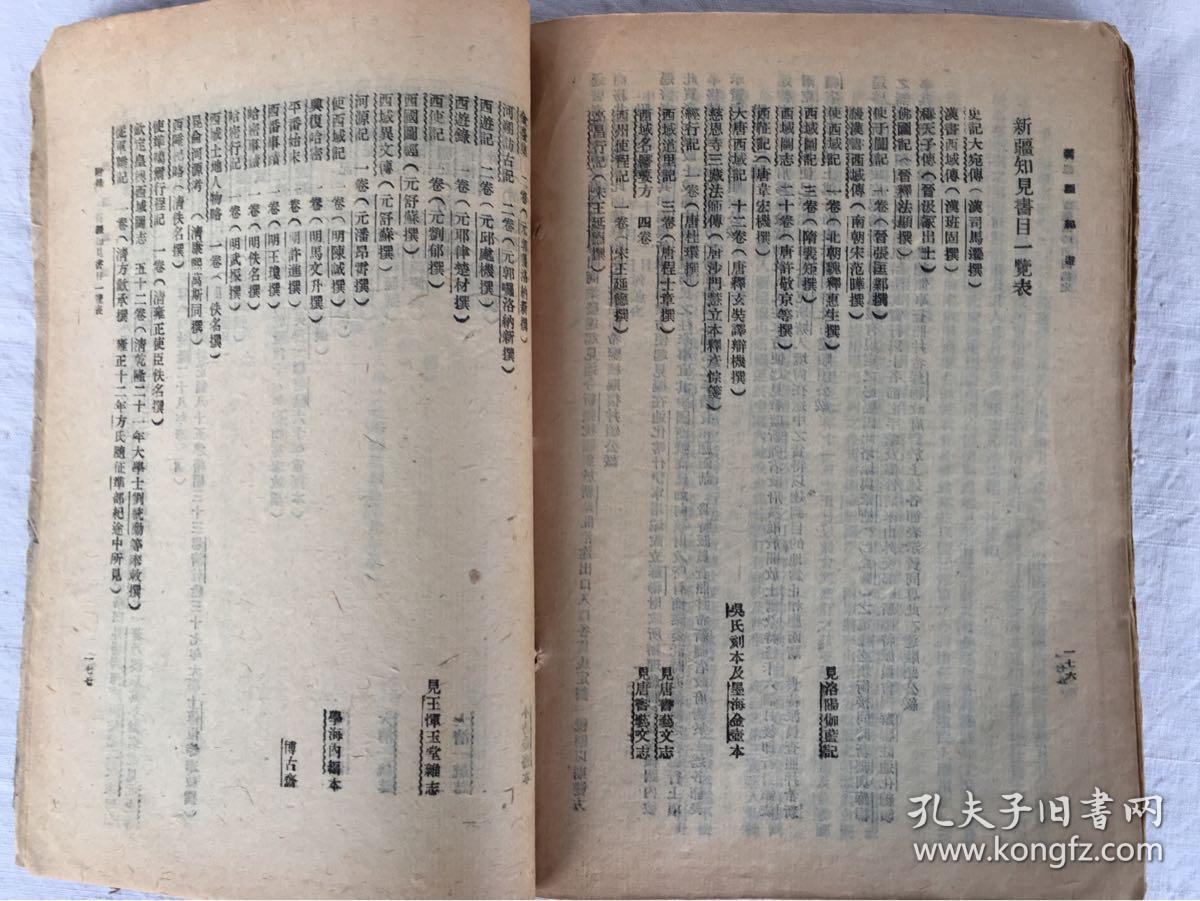 新疆知見書目一覽表
史記大宛傳（漢司馬遷撰）
漢書西域傳（漢班固撰）
穆天子傳（晉汲冢出土）
佛國記（晉釋法顯撰）
使于闐記　一卷（晉張匡鄴撰）
後漢書西域傳（南朝宋范曄撰）
使西域記　一卷（北朝魏釋惠生撰）　見洛陽伽藍記
西域圖記　三卷（隋裴矩撰）
西域圖志　二十卷（唐許敬京等撰）
西征記（唐韋宏機撰）
大唐西域記　十二卷（唐釋玄奘譯辯機撰）　吳氏刻本及墨海金壺本
慈恩寺三藏法師傳（唐沙門慧立本釋彥悰箋）
經行記　一卷（唐杜環撰）
西域道里記　三卷（唐程士章撰）　見唐書藝文志
西域名醫要方　四卷　見唐書藝文志
西州使程記　一卷（宋王延德撰）
高昌行記（宋王延德撰）
一七六
河朔訪古記　二卷（元郭囉洛納新撰）
西遊記　二卷（元邱處機撰）
西遊錄　一卷（元耶律楚材撰）
西使記　一卷（元劉郁撰）　見王惲玉堂雜志
西國圖經（元舒蘇撰）
西域異人傳（元舒蘇撰）
河源記　一卷（元潘昂霄撰）
使西域記　一卷（明陳誠撰）　學海內編本
興復哈密　一卷（明馬文升撰）
平番始末　一卷（明許進撰）　博古齋
西番事蹟　一卷（明王瓊撰）
哈密事蹟　一卷（明佚名撰）
哈密行記　一卷（明武振撰）
西域土地人物略　一卷（佚名撰）
崑侖河源考（清康熙萬斯同撰）
西陲記略（清佚名撰）
使準噶爾行程記　一卷（清雍正使臣佚名撰）
欽定皇輿西域圖志　五十二卷（清乾隆二十一年大學士劉統勳等奉敕撰）
從軍雜記　一卷（清方觀承撰　雍正十二年方氏隨征準部紀途中所見）
一七七
孔夫子旧书网
www.kongfz.com